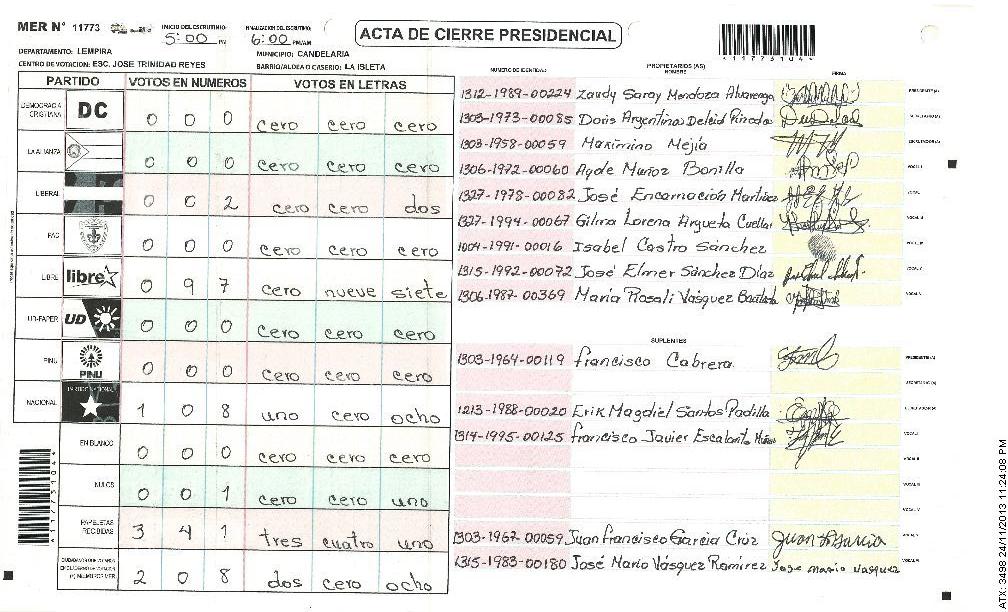 MER N° 11773
INICIO DEL ESCRUTINIO:
5:00 PM
FINALIZACION DEL ESCRUTINIO:
6:00 PM/AM
ACTA DE CIERRE PRESIDENCIAL
*11773104*
DEPARTAMENTO: LEMPIRA
MUNICIPIO: CANDELARIA
CENTRO DE VOTACION: ESC. JOSE TRINIDAD REYES
BARRIO/ALDEA O CASERIO: LA ISLETA
PARTIDO VOTOS EN NUMEROS VOTOS EN LETRAS
DEMOCRACIA CRISTIANA DC 0 0 0 cero cero cero
LA ALIANZA 0 0 0 cero cero cero
LIBERAL 0 0 2 cero cero dos
PAC 0 0 0 cero cero cero
LIBRE libre 0 9 7 cero nueve siete
UD-FAPER UD 0 0 0 cero cero cero
PINU PINU 0 0 0 cero cero cero
NACIONAL PARTIDO NACIONAL 1 0 8 uno cero ocho
EN BLANCO 0 0 0 cero cero cero
NULOS 0 0 1 cero cero uno
PAPELETAS RECIBIDAS 3 4 1 tres cuatro uno
2 0 8 dos cero ocho
NUMERO DE IDENTIDAD PROPIETARIOS (AS) NOMBRE FIRMA
1312-1989-00224 Zaudy Saray Mendoza Alvarenga PRESIDENTE (A)
1303-1973-00085 Doris Argentina Deleid Pineda SECRETARIO (A)
1303-1958-00059 Maximino Mejia ESCRUTADOR (A)
1306-1972-00060 Ayde Muñoz Bonilla VOCAL I
1327-1978-00082 José Encarnación Martínez
1327-1994-00067 Gilma Lorena Argueta Cuellar
1004-1991-00016 Isabel Castro Sánchez
1315-1992-00072 José Elmer Sánchez Díaz
1306-1987-00369 María Rosali Vásquez
SUPLENTES
1303-1964-00119 Francisco Cabrera PRESIDENTE (A)
SECRETARIO (A)
1213-1988-00020 Erik Magdiel Santos Padilla ESCRUTADOR (A)
1314-1995-00125 Francisco Javier Escalante VOCAL I
VOCAL II
VOCAL III
VOCAL IV
1303-1967-00059 Juan Francisco Garcia Cruz Juan F Garcia VOCAL V
1315-1983-00180 José Mario Vásquez Ramirez Jose mario vasquez
*11773104*
ATX: 3498 24/11/2013 11:24:08 PM